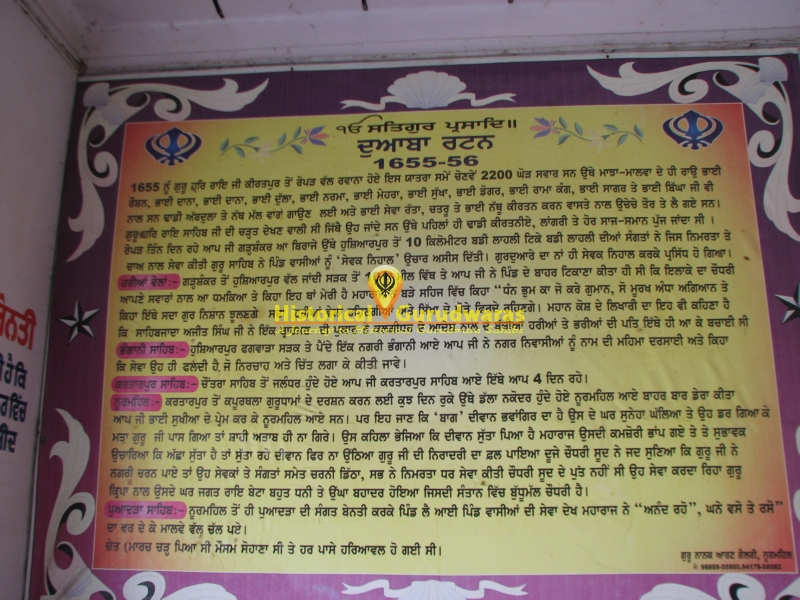 ੴ ਸਤਿਗੁਰ ਪ੍ਰਸਾਦਿ॥
ਦੁਆਬਾ ਰਟਨ
1655-56
1655 ਨੂੰ ਗੁਰੂ ਹਰਿ ਰਾਇ ਜੀ ਕੀਰਤਪੁਰ ਤੋਂ ਰੋਪੜ ਵੱਲ ਰਵਾਨਾ ਹੋਏ ਇਸ ਯਾਤਰਾ ਸਮੇਂ ਚੋਣਵੇਂ 2200 ਘੋੜ ਸਵਾਰ ਸਨ ਉਥੇ ਮਾਝਾ-ਮਾਲਵਾ ਦੇ ਹੀ ਰਾਉ ਭਾਈ
ਰੋਸ਼ਨ, ਭਾਈ ਦਾਨਾ, ਭਾਈ ਦਾਨਾ, ਭਾਈ ਦੁੱਲਾ, ਭਾਈ ਨਰਮਾ, ਭਾਈ ਮੇਹਰਾ, ਭਾਈ ਸੁੱਖਾ, ਭਾਈ ਡੋਗਰ, ਭਾਈ ਰਾਮਾ ਕੰਗ, ਭਾਈ ਸਾਗਰ ਤੇ ਭਾਈ ਬਿੰਘਾ ਜੀ ਵੀ
ਨਾਲ ਸਨ ਢਾਡੀ ਅੱਬਦੁਲਾ ਤੇ ਨੱਬ ਮੱਲ ਵਾਰਾਂ ਗਾਉਣ ਲਈ ਅਤੇ ਭਾਈ ਸੇਵਾ ਰੱਤਾ, ਚਤਰੂ ਤੇ ਭਾਈ ਨੱਥੂ ਕੀਰਤਨ ਕਰਨ ਵਾਸਤੇ ਨਾਲ ਉਚੇਚੇ ਤੋਰ ਤੇ ਲੈ ਗਏ ਸਨ।
ਗੁਰੂ ਹਰਿ ਰਾਇ ਸਾਹਿਬ ਜੀ ਦੀ ਚੜ੍ਹਤ ਦੇਖਣ ਵਾਲੀ ਸੀ ਜਿੱਥੇ ਉਹ ਜਾਂਦੇ ਸਨ ਉਥੇ ਪਹਿਲਾਂ ਹੀ ਢਾਡੀ ਕੀਰਤਨੀਏ, ਲਾਂਗਰੀ ਤੇ ਹੋਰ ਸਾਜ-ਸਮਾਨ ਪੁੱਜ ਜਾਂਦਾ ਸੀ।
ਰੋਪੜ ਤਿੰਨ ਦਿਨ ਰਹੇ ਆਪ ਜੀ ਗੜ੍ਹਸ਼ੰਕਰ ਆ ਬਿਰਾਜੇ ਉਥੇ ਹੁਸ਼ਿਆਰਪੁਰ ਤੋਂ 10 ਕਿਲੋਮੀਟਰ ਬਡੀ ਲਾਹਲੀ ਟਿਕੇ ਬਡੀ ਲਾਹਲੀ ਦੀਆਂ ਸੰਗਤਾਂ ਨੇ ਜਿਸ ਨਿਮਰਤਾ ਤੇ
ਚਾਅ ਨਾਲ ਸੇਵਾ ਕੀਤੀ ਗੁਰੂ ਸਾਹਿਬ ਨੇ ਪਿੰਡ ਵਾਸੀਆਂ ਨੂੰ 'ਸੇਵਕ ਨਿਹਾਲ' ਉਚਾਰ ਅਸੀਸ ਦਿੱਤੀ। ਗੁਰਦੁਆਰੇ ਦਾ ਨਾਂ ਹੀ ਸੇਵਕ ਨਿਹਾਲ ਕਰਕੇ ਪ੍ਰਸਿੱਧ ਹੋ ਗਿਆ।
ਹਰੀਆਂ ਵੇਲਾਂ:- ਗੜ੍ਹਸ਼ੰਕਰ ਤੋਂ ਹੁਸ਼ਿਆਰਪੁਰ ਵੱਲ ਜਾਂਦੀ ਸੜਕ ਤੋਂ ਵਿੱਥ ਤੇ ਆਪ ਜੀ ਨੇ ਪਿੰਡ ਦੇ ਬਾਹਰ ਟਿਕਾਣਾ ਕੀਤਾ ਹੀ ਸੀ ਕਿ ਇਲਾਕੇ ਦਾ ਚੌਧਰੀ
ਆਪਣੇ ਸਵਾਰਾਂ ਨਾਲ ਆ ਧਮਕਿਆ ਤੇ ਕਿਹਾ ਇਹ ਥਾਂ ਮੇਰੀ ਹੈ ਬੜੇ ਸਹਿਜ ਵਿੱਚ ਕਿਹਾ "ਧੰਨ ਭੁਮ ਕਾ ਜੋ ਕਰੇ ਗੁਮਾਨ, ਸੋ ਮੂਰਖ ਅੰਧਾ ਅਗਿਆਨ ਤੇ
ਕਿਹਾ ਇੱਥੇ ਸਦਾ ਗੁਰ ਨਿਸ਼ਾਨ ਝੂਲਣਗੇ ਰਹਿਣਗੇ। ਮਹਾਨ ਕੋਸ਼ ਦੇ ਲਿਖਾਰੀ ਦਾ ਇਹ ਵੀ ਕਹਿਣਾ ਹੈ
ਕਿ ਸਾਹਿਬਜਾਦਾ ਅਜੀਤ ਸਿੰਘ ਜੀ ਨੇ ਇੱਕ ਹਰੀਆਂ ਤੇ ਭਰੀਆਂ ਦੀ ਪਤਿ ਇੱਥੇ ਹੀ ਆ ਕੇ ਬਚਾਈ ਸੀ
ਭੰਗਾਨੀ ਸਾਹਿਬ:- ਹੁਸ਼ਿਆਰਪੁਰ ਫਗਵਾੜਾ ਸੜਕ ਤੇ ਪੈਂਦੇ ਇੱਕ ਨਗਰੀ ਭੰਗਾਨੀ ਆਏ ਆਪ ਜੀ ਨੇ ਨਗਰ ਨਿਵਾਸੀਆਂ ਨੂੰ ਨਾਮ ਦੀ ਮਹਿਮਾ ਦਰਸਾਈ ਅਤੇ ਕਿਹਾ
ਕਿ ਸੇਵਾ ਉਹ ਹੀ ਫਲਦੀ ਹੈ, ਜੋ ਨਿਰਚਾਹ ਅਤੇ ਚਿੱਤ ਲਗਾ ਕੇ ਕੀਤੀ ਜਾਵੇ।
ਕਰਤਾਰਪੁਰ ਸਾਹਿਬ:- ਚੌਂਤਰਾ ਸਾਹਿਬ ਤੋਂ ਜਲੰਧਰ ਹੁੰਦੇ ਹੋਏ ਆਪ ਜੀ ਕਰਤਾਰਪੁਰ ਸਾਹਿਬ ਆਏ ਇੱਥੇ ਆਪ 4 ਦਿਨ ਰਹੇ।
ਨੂਰਮਹਿਲ:- ਕਰਤਾਰਪੁਰ ਤੋਂ ਕਪੂਰਥਲਾ ਗੁਰੂਧਾਮਾਂ ਦੇ ਦਰਸ਼ਨ ਕਰਨ ਲਈ ਕੁਝ ਦਿਨ ਰੁਕੇ ਉਥੇ ਡੱਲਾ ਨਕੋਦਰ ਹੁੰਦੇ ਹੋਏ ਨੂਰਮਹਿਲ ਆਏ ਬਾਹਰ ਬਾਰ ਡੇਰਾ ਕੀਤਾ
ਆਪ ਜੀ ਭਾਈ ਸੁਖੀਆ ਦੇ ਪ੍ਰੇਮ ਕਰ ਕੇ ਨੂਰਮਹਿਲ ਆਏ ਸਨ। ਪਰ ਇਹ ਜਾਣ ਕਿ 'ਬਾਗ' ਦੀਵਾਨ ਭਵਾਂਗਿਰ ਦਾ ਹੈ ਉਸ ਦੇ ਘਰ ਸੁਨੇਹਾ ਘੱਲਿਆ ਤੇ ਉਹ ਡਰ ਗਿਆ ਕੇ
ਮਤਾ ਗੁਰੂ ਜੀ ਪਾਸ ਗਿਆ ਤਾਂ ਸ਼ਾਹੀ ਅਤਾਬ ਹੀ ਨਾ ਗਿਰੇ। ਉਸ ਕਹਿਲਾ ਭੇਜਿਆ ਕਿ ਦੀਵਾਨ ਸੁੱਤਾ ਪਿਆ ਹੈ ਮਹਾਰਾਜ ਉਸਦੀ ਕਮਜ਼ੋਰੀ ਭਾਂਪ ਗਏ ਤੇ ਤੇ ਸੁਭਾਵਕ
ਉਚਾਰਿਆ ਕਿ ਅੱਛਾ ਸੁੱਤਾ ਹੈ ਤਾਂ ਸੁੱਤਾ ਰਹੇ ਦੀਵਾਨ ਫਿਰ ਨਾ ਉਠਿਆ ਗੁਰੂ ਜੀ ਦੀ ਨਿਰਾਦਰੀ ਦਾ ਫ਼ਲ ਪਾਇਆ ਦੂਜੇ ਚੌਧਰੀ ਸੂਦ ਨੇ ਜਦ ਸੁਣਿਆ ਕਿ ਗੁਰੂ ਜੀ ਨੇ
ਨਗਰੀ ਚਰਨ ਪਾਏ ਤਾਂ ਉਹ ਸੇਵਕਾਂ ਤੇ ਸੰਗਤਾਂ ਸਮੇਤ ਚਰਨੀ ਡਿੱਠਾ, ਸਭ ਨੇ ਨਿਮਰਤਾ ਧਰ ਸੇਵਾ ਕੀਤੀ ਚੌਧਰੀ ਸੂਦ ਦੇ ਪੁੱਤ ਨਹੀਂ ਸੀ ਉਹ ਸੇਵਾ ਕਰਦਾ ਰਿਹਾ ਗੁਰੂ
ਕ੍ਰਿਪਾ ਨਾਲ ਉਸਦੇ ਘਰ ਜਗਤ ਰਾਇ ਬੇਟਾ ਬਹੁਤ ਧਨੀ ਤੇ ਉੱਘਾ ਬਹਾਦਰ ਹੋਇਆ ਜਿਸਦੀ ਸੰਤਾਨ ਵਿੱਚ ਬੁੱਧੂਮੱਲ ਚੌਧਰੀ ਹੈ।
ਪੁਆਦੜਾ ਸਾਹਿਬ:- ਨੂਰਮਹਿਲ ਤੋਂ ਹੀ ਪੁਆਦੜਾ ਦੀ ਸੰਗਤ ਬੇਨਤੀ ਕਰਕੇ ਪਿੰਡ ਲੈ ਆਈ ਪਿੰਡ ਵਾਸੀਆਂ ਦੀ ਸੇਵਾ ਦੇਖ ਮਹਾਰਾਜ ਨੇ "ਅਨੰਦ ਰਹੋ", ਘਨੇ ਵਸੋ ਤੇ ਰਸੋ"
ਦਾ ਵਰ ਦੇ ਕੇ ਮਾਲਵੇ ਵੱਲ ਚੱਲ ਪਏ।
ਚੇਤ (ਮਾਰਚ ਚੜ੍ਹ ਪਿਆ ਸੀ ਮੌਸਮ ਸੋਹਾਣਾ ਸੀ ਤੇ ਹਰ ਪਾਸੇ ਹਰਿਆਵਲ ਹੋ ਗਈ ਸੀ।
ਗੁਰੂ ਨਾਨਕ ਆਰਟ ਗੈਲਰੀ, ਨੂਰਮਹਿਲ
Historical Gurudwaras
ਬੇਨਤੀ